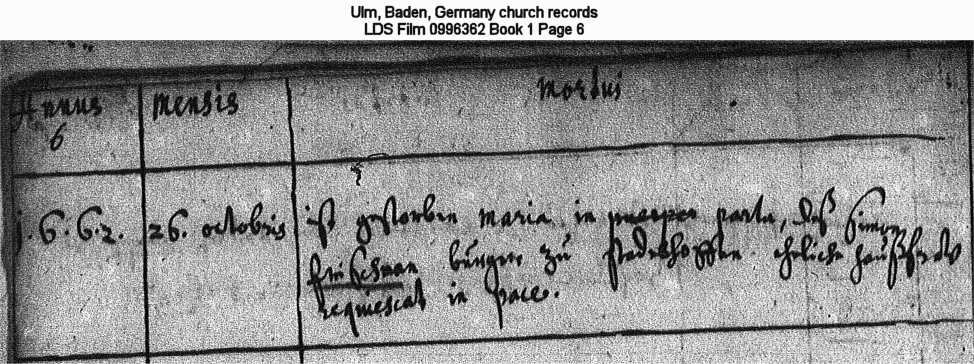 Ulm, Baden, Germany church records
LDS Film 0996362 Book 1 Page 6
Annus mensis mortui
6
1.6.6.2. 26. octobris ist gestorben maria in puerper partu, deß Simon
burger zu Stadelhoffen ehliche haußfraw
requiescat in pace.